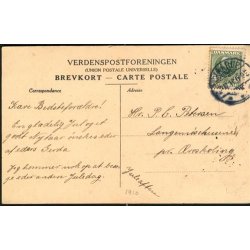 VERDENSPOSTFORENINGEN
(UNION POSTALE UNIVERSELLE)
BREVKORT — CARTE POSTALE
Correspondance
Adresse
Kære Bedsteforældre!
En glædelig Jul og et
godt Nytaar ønskes eder
af eders Gerda
Jeg kommer nok op at besø-
ge eder anden Juledag.
Hr. P. C. Petersen
pr. Roskilde
Juleaften
1910